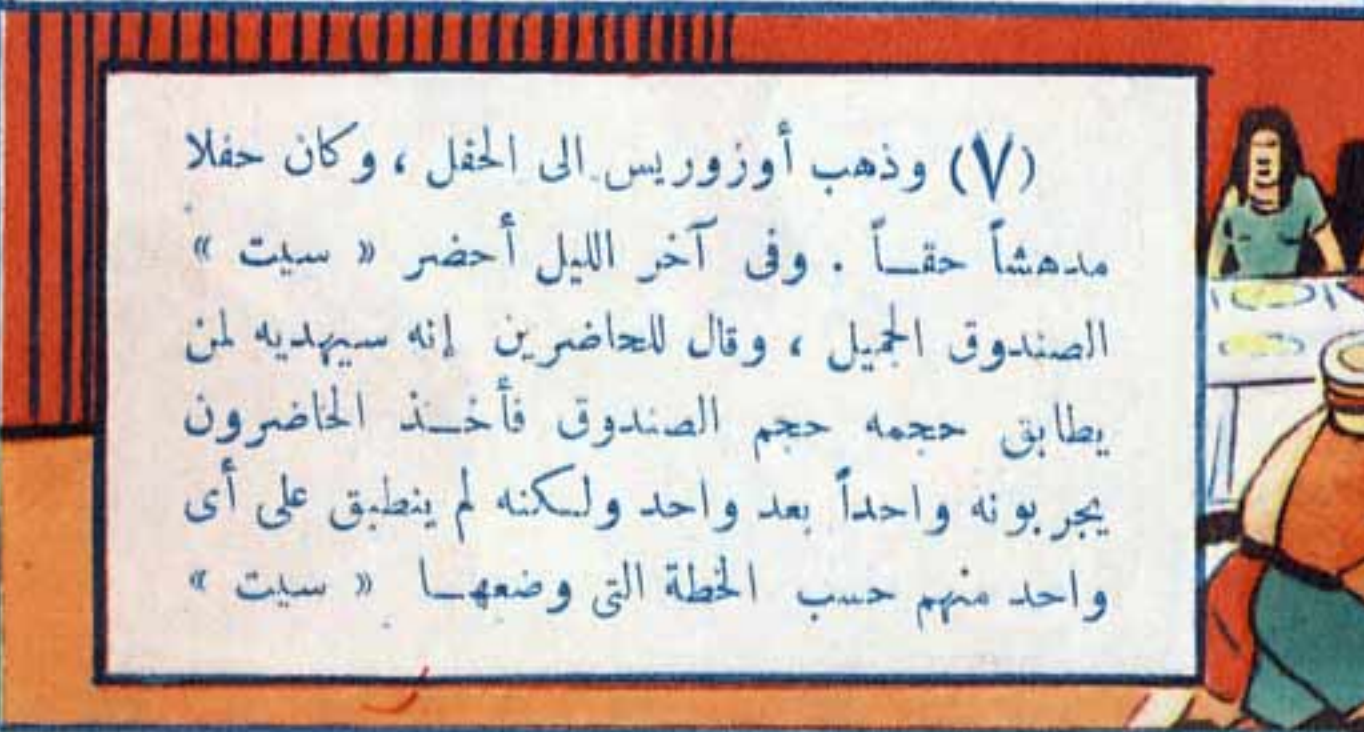 (٧) وذهب أوزوريس الى الحفل ، وكان حفلا
مدهشاً حقـاً . وفى آخر الليل أحضر « سيت »
الصندوق الجميل ، وقال للحاضرين إنه سيهديه لمن
يطابق حجمه حجم الصندوق فأخـذ الحاضرون
يجربونه واحداً بعد واحد ولكنه لم ينطبق على أى
واحد منهم حسب الخطة التى وضعهـا « سيت »